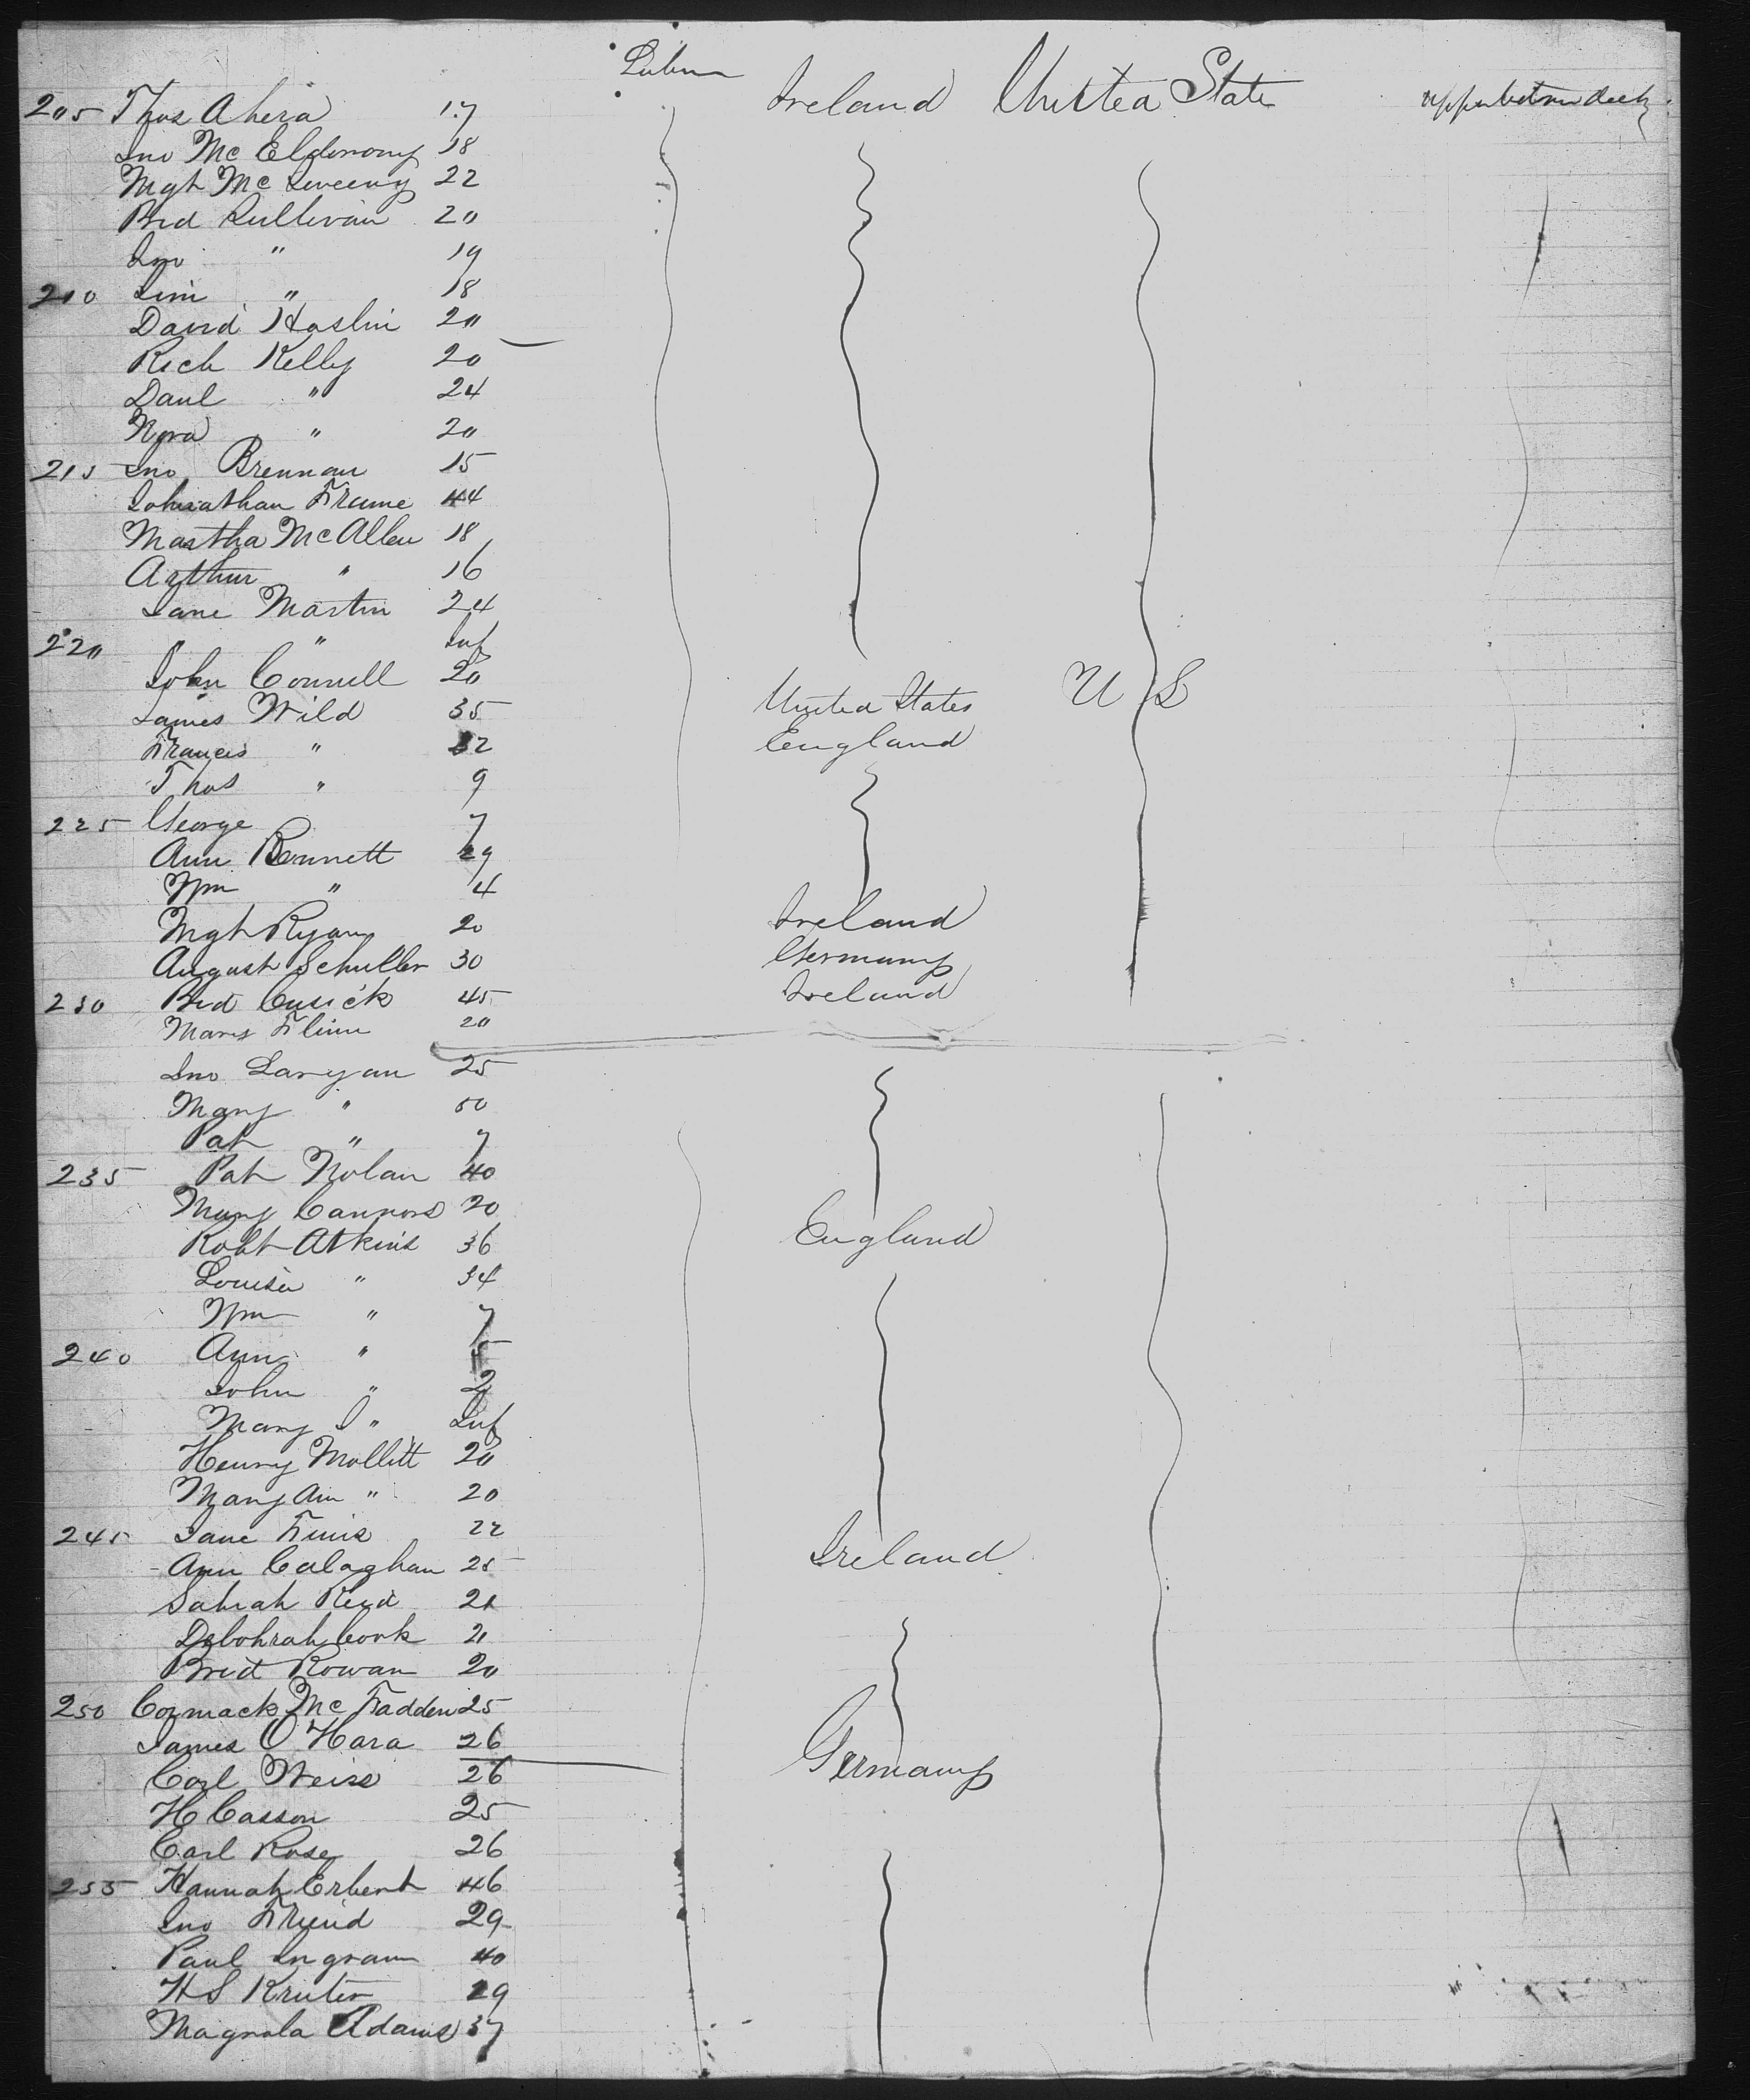 205 Thos Ahera 17 Labour Ireland United State upper between deck
Jno Mc Elderony 18
Mgt Mc Sweeny 22
Brd Sullivan 20
Jno " 19
210 Jim " 18
David Haslin 20
Rich Kelly 20
Danl " 24
Nora " 20
215 Jno Brennan 15
Johnathan Frame 44
Martha McAllen 18
Arthur " 16
Jane Martin 24
220 " " Inf
John Connell 20
James Wild 35 United States U S
Francis " 32 England
Thos " 9
225 George 7
Ann Bennett 29
Wm " 4
Mgt Ryan 20 Ireland
August Schuller 30 Germany
230 Brd Cusick 45 Ireland
Mary Flinn 20
Jno Langan 25
Mary " 50
Pat " 7
235 Pat Nolan 40
Mary Cannors 20
Robt Atkins 36 England
Louisa " 34
Wm " 7
240 Ann "
John " 2
Mary J " Inf
Henry Mollett 20
Mary Ann " 20
245 Jane Finis 22
Ann Calaghan 25 Ireland
Sahrah Reid 21
Debohrah Cook 21
Brid Rowan 20
250 Cormack Mc Fadden 25
James O'Hara 26
Carl Weiss 26 Germany
H Casson 25
Carl Rose 26
255 Hannah Erbent 46
Jno Friend 29
Paul Ingram 40
H S Kruter 29
Magnola Adams 37